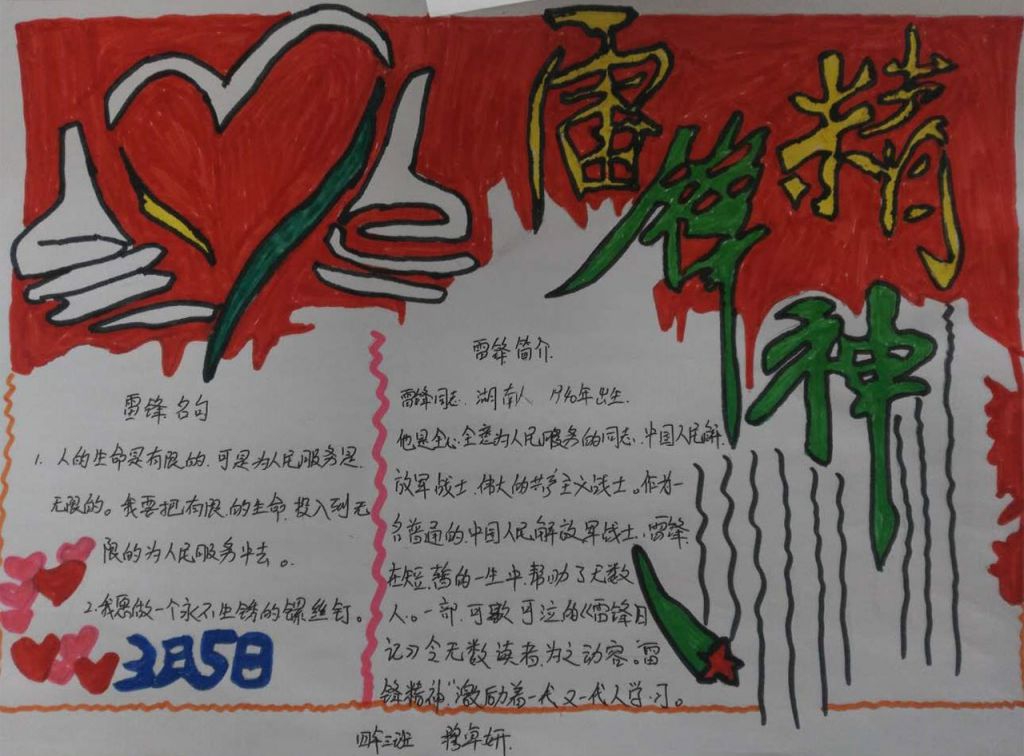 雷锋精神
雷锋名句
1. 人的生命是有限的.可是为人民服务是
无限的。我要把有限的生命.投入到无
限的为人民服务中去。
2.我愿做一个永不生锈的螺丝钉。
3月5日
雷锋简介.
雷锋同志.湖南人 1940年出生.
他是全心全意为人民服务的同志.中国人民解
放军战士.伟大的共产主义战士。作为一
名普通的中国人民解放军战士.雷锋
在短暂的一生中.帮助了无数
人。一部可歌可泣的《雷锋日
记》令无数读者为之动容。雷
锋精神"激励着一代又一代人学习。
四年三班